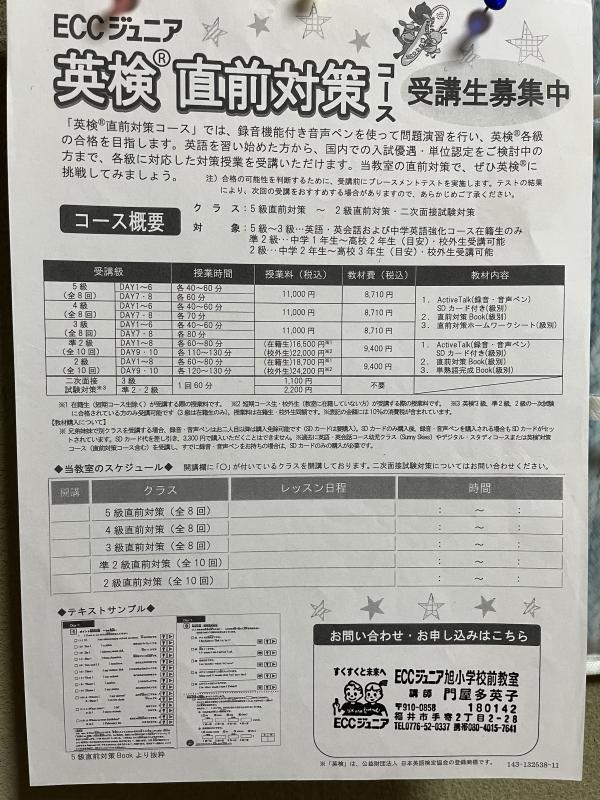 ECCジュニア
英検® 直前対策 コース 受講生募集中
「英検®直前対策コース」では、録音機能付き音声ペンを使って問題演習を行い、英検®各級
の合格を目指します。英語を習い始めた方から、国内での入試優遇・単位認定をご検討中の
方まで、各級に対応した対策授業を受講いただけます。当教室の直前対策で、ぜひ英検®に
挑戦してみましょう。
注）合格の可能性を判断するために、受講前にプレースメントテストを実施します。テストの結果
により、次回の受講をおすすめする場合がありますので、あらかじめご了承ください。
コース概要
クラス：5級直前対策 ～ 2級直前対策・二次面接試験対策
対象：5級～3級…英語・英会話および中学英語強化コース在籍生のみ
準2級…中学1年生～高校2年生（目安）・校外生受講可能
2級…中学2年～高校3年生（目安）・校外生受講可能
受講級 授業時間 授業料（税込） 教材費（税込） 教材内容
5級（全8回） DAY1～6 各40～60分 11,000円 8,710円
DAY7・8 各60分
4級（全8回） DAY1～6 各40～60分 11,000円 8,710円
DAY7・8 各70分
3級（全8回） DAY1～6 各40～60分 11,000円 8,710円
DAY7・8 各80分
1. ActiveTalk(録音・音声ペン)
SDカード付き(級別)
2. 直前対策Book(級別)
3. 直前対策ホームワークシート(級別)
準2級（全10回） DAY1～8 各60～80分 (在籍生)16,500円※1 9,400円
DAY9・10 各110～130分 (校外生)22,000円※2
2級（全10回） DAY1～8 各60～80分 (在籍生)18,700円※1 9,400円
DAY9・10 各120～130分 (校外生)24,200円※2
1. ActiveTalk(録音・音声ペン)
SDカード付き(級別)
2. 直前対策Book(級別)
3. 単熟語完成Book(級別)
二次面接試験対策※3 3級 1回60分 1,100円 不要
準2・2級 2,200円
※1 在籍生（短期コース生除く）が受講する際の授業料です。 ※2 短期コース生・校外生（教室に在籍していない方）が受講する際の授業料です。 ※3 英検®3級、準2級、2級の一次試験
に合格されている方のみ受講可能です（3級は在籍生のみ）。授業料は在籍生・校外生同額です。※表記の金額には10%の消費税が含まれています。
【教材購入について】
※ 兄弟姉妹で別クラスを受講する場合、録音・音声ペンはお二人目以降は購入免除可能です（SDカードは要購入）。SDカードのみ購入後、録音・音声ペンを購入される場合もSDカードがセッ
トされています。SDカード代を差し引き、3,300円で購入いただくことはできません。※過去に英語・英会話コース幼児クラス（Sunny Skies）やデジタル・スタディコースまたは英検®対策
コース（直前対策コース含む）を受講し、すでに録音・音声ペンをお持ちの場合は、SDカードのみの購入が必要です。
◆当教室のスケジュール◆ 開講欄に「○」が付いているクラスを開講しております。二次面接試験対策についてはお問い合わせください。
開講 クラス レッスン日程 時間
5級直前対策（全8回） ： ～ ：
4級直前対策（全8回） ： ～ ：
3級直前対策（全8回） ： ～ ：
準2級直前対策（全10回） ： ～ ：
2級直前対策（全10回） ： ～ ：
◆テキストサンプル◆
5級直前対策Bookより抜粋
お問い合わせ・お申し込みはこちら
すくすくと未来へ
ECCジュニア
ECCジュニア旭小学校前教室
講師 門屋多英子
〒910-0858 180142
福井市手寄2丁目2-28
TEL0776-52-0337 携帯080-4015-7641
※「英検」は、公益財団法人 日本英語検定協会の登録商標です。 143-132538-11